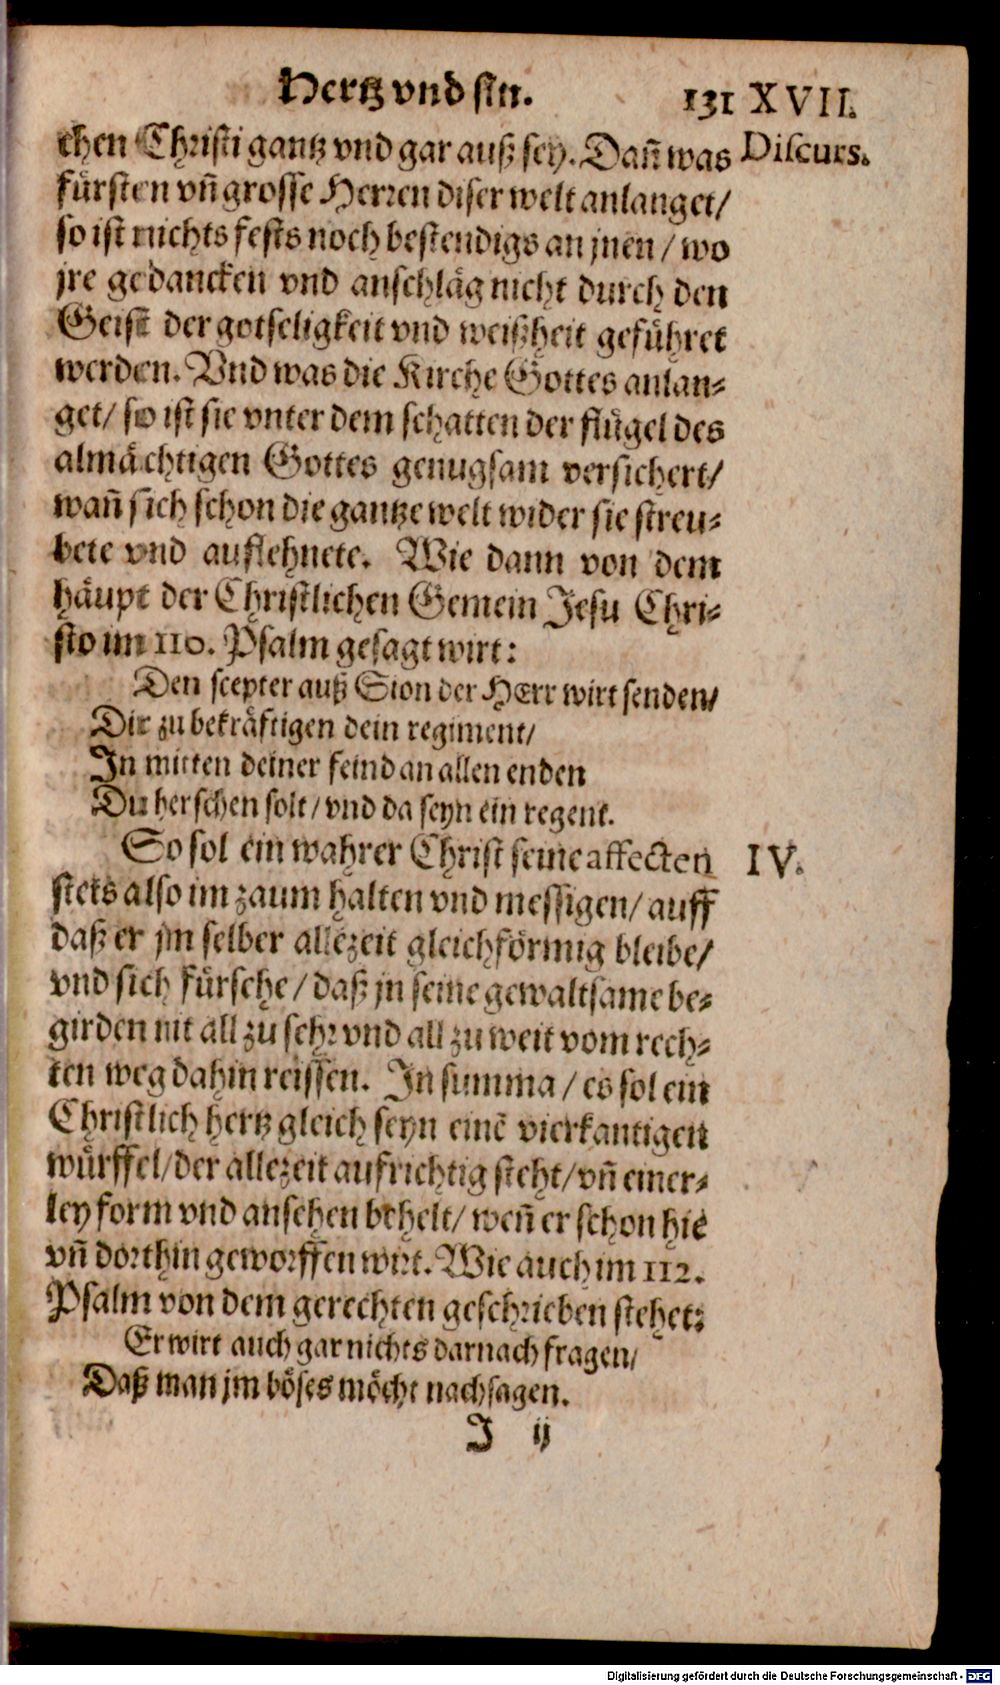 Hertz vnd sin. 131 XVII.
chen Christi gantz vnd gar auß sey. Dañ was Discurs.
fürsten vñ grosse Herren diser welt anlanget/
so ist nichts fests noch bestendigs an jnen / wo
jre gedancken vnd anschläg nicht durch den
Geist der gotseligkeit vnd weißheit geführet
werden. Vnd was die Kirche Gottes anlan-
get/ so ist sie vnter dem schatten der flügel des
almächtigen Gottes genugsam versichert/
wañ sich schon die gantze welt wider sie streu-
bete vnd auflehnete. Wie dann von dem
häupt der Christlichen Gemein Jesu Chri-
sto im 110. Psalm gesagt wirt:
Den scepter auß Sion der HErr wirt senden/
Dir zu bekräftigen dein regiment/
In mitten deiner feind an allen enden
Du herschen solt/ vnd da seyn ein regent.
So sol ein wahrer Christ seine affecten IV.
stets also im zaum halten vnd messigen/ auff
daß er jm selber allezeit gleichförmig bleibe/
vnd sich fürsehe / daß jn seine gewaltsame be-
girden nit all zu sehr vnd all zu weit vom rech-
ten weg dahin reissen. In summa / es sol ein
Christlich hertz gleich seyn einē vierkantigen
würffel/ der allezeit aufrichtig steht/ vñ einer-
ley form vnd ansehen behelt/ weñ er schon hie
vñ dorthin geworffen wirt. Wie auch im 112.
Psalm von dem gerechten geschrieben stehet:
Er wirt auch gar nichts darnach fragen/
Daß man jm böses möcht nachsagen.
J ij
Digitalisierung gefördert durch die Deutsche Forschungsgemeinschaft - DFG